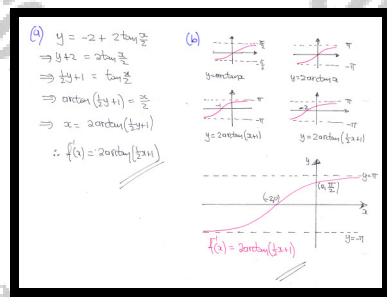 (a) y = -2 + 2tan x/2
⇒ y+2 = 2tan x/2
⇒ ½y+1 = tan x/2
⇒ arctan(½y+1) = x/2
⇒ x = 2arctan(½y+1)
∴ f⁻¹(x) = 2arctan(½x+1)
(b)
π/2
-π/2
y=arctanx
π
-π
y=2arctanx
π
-π
y=2arctan(x+1)
π
-2
-π
y=2arctan(½x+1)
y
y=π
(0, π/2)
(-2,0)
x
y=-π
f⁻¹(x) = 2arctan(½x+1)